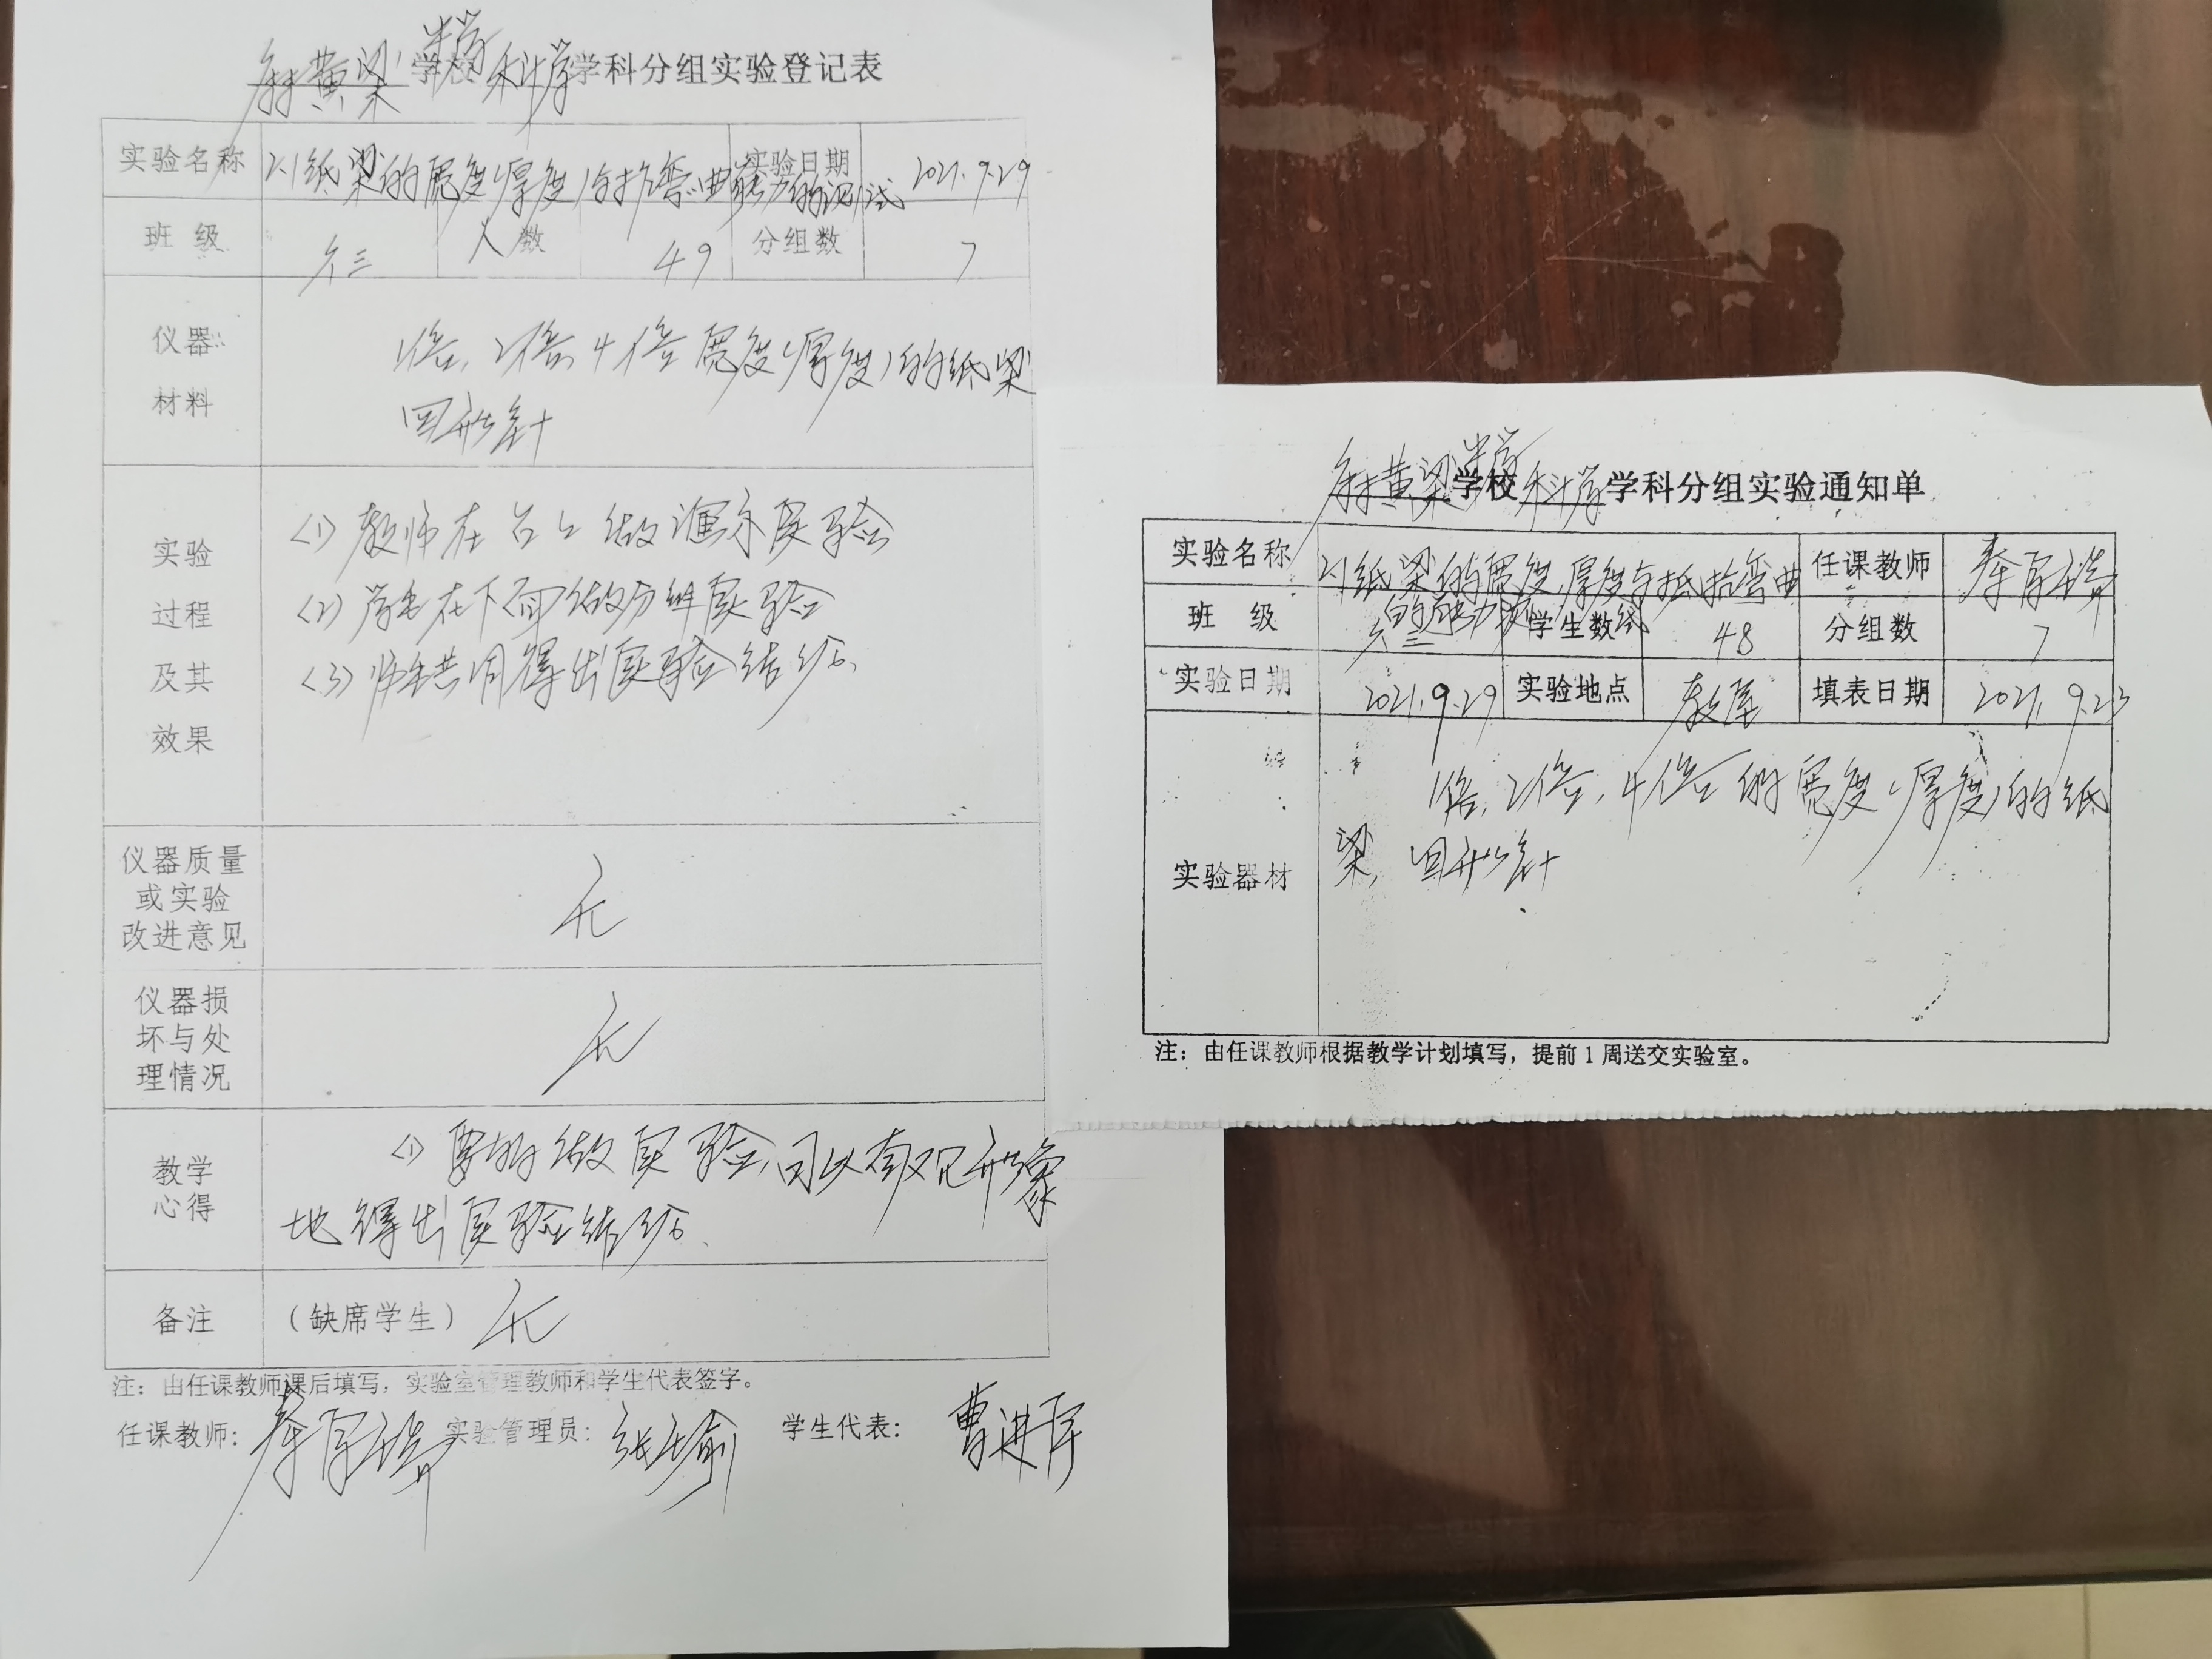 黄梁小学学校科学学科分组实验登记表
实验名称 2.1纸梁的宽度(厚度)与抗弯曲能力的测试 实验日期 2021.9.29
班 级 六三 人数 49 分组数 7
仪器
材料
1倍、2倍、4倍宽度(厚度)的纸梁
回形针
实验
过程
及其
效果
(1) 教师在台上做演示实验
(2) 学生在下面做分组实验
(3) 师生共同得出实验结论、
仪器质量
或实验
改进意见
无
仪器损
坏与处
理情况
无
教学
心得
(1) 要做实验,可以直观形象
地得出实验结论、
备注 (缺席学生) 无
注:由任课教师课后填写,实验室管理教师和学生代表签字。
任课教师: 实验管理员: 张瑜 学生代表: 曹进
黄梁小学学校科学学科分组实验通知单
实验名称 2.1纸梁的宽度,厚度与抵抗弯曲的能力测试 任课教师
班 级 六三 学生数 48 分组数 7
实验日期 2021.9.29 实验地点 教室 填表日期 2021.9.23
实验器材
1倍、2倍、4倍的宽度(厚度)的纸
梁,回形针
注:由任课教师根据教学计划填写,提前1周送交实验室。